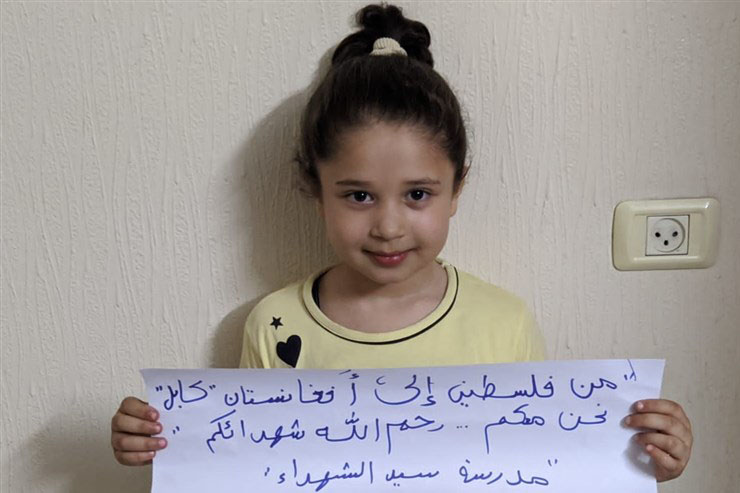 "من فلسطين إلى أفغانستان "كابل"
نحن معكم .. رحم الله شهدائكم"
"مدرسة سيد الشهداء"